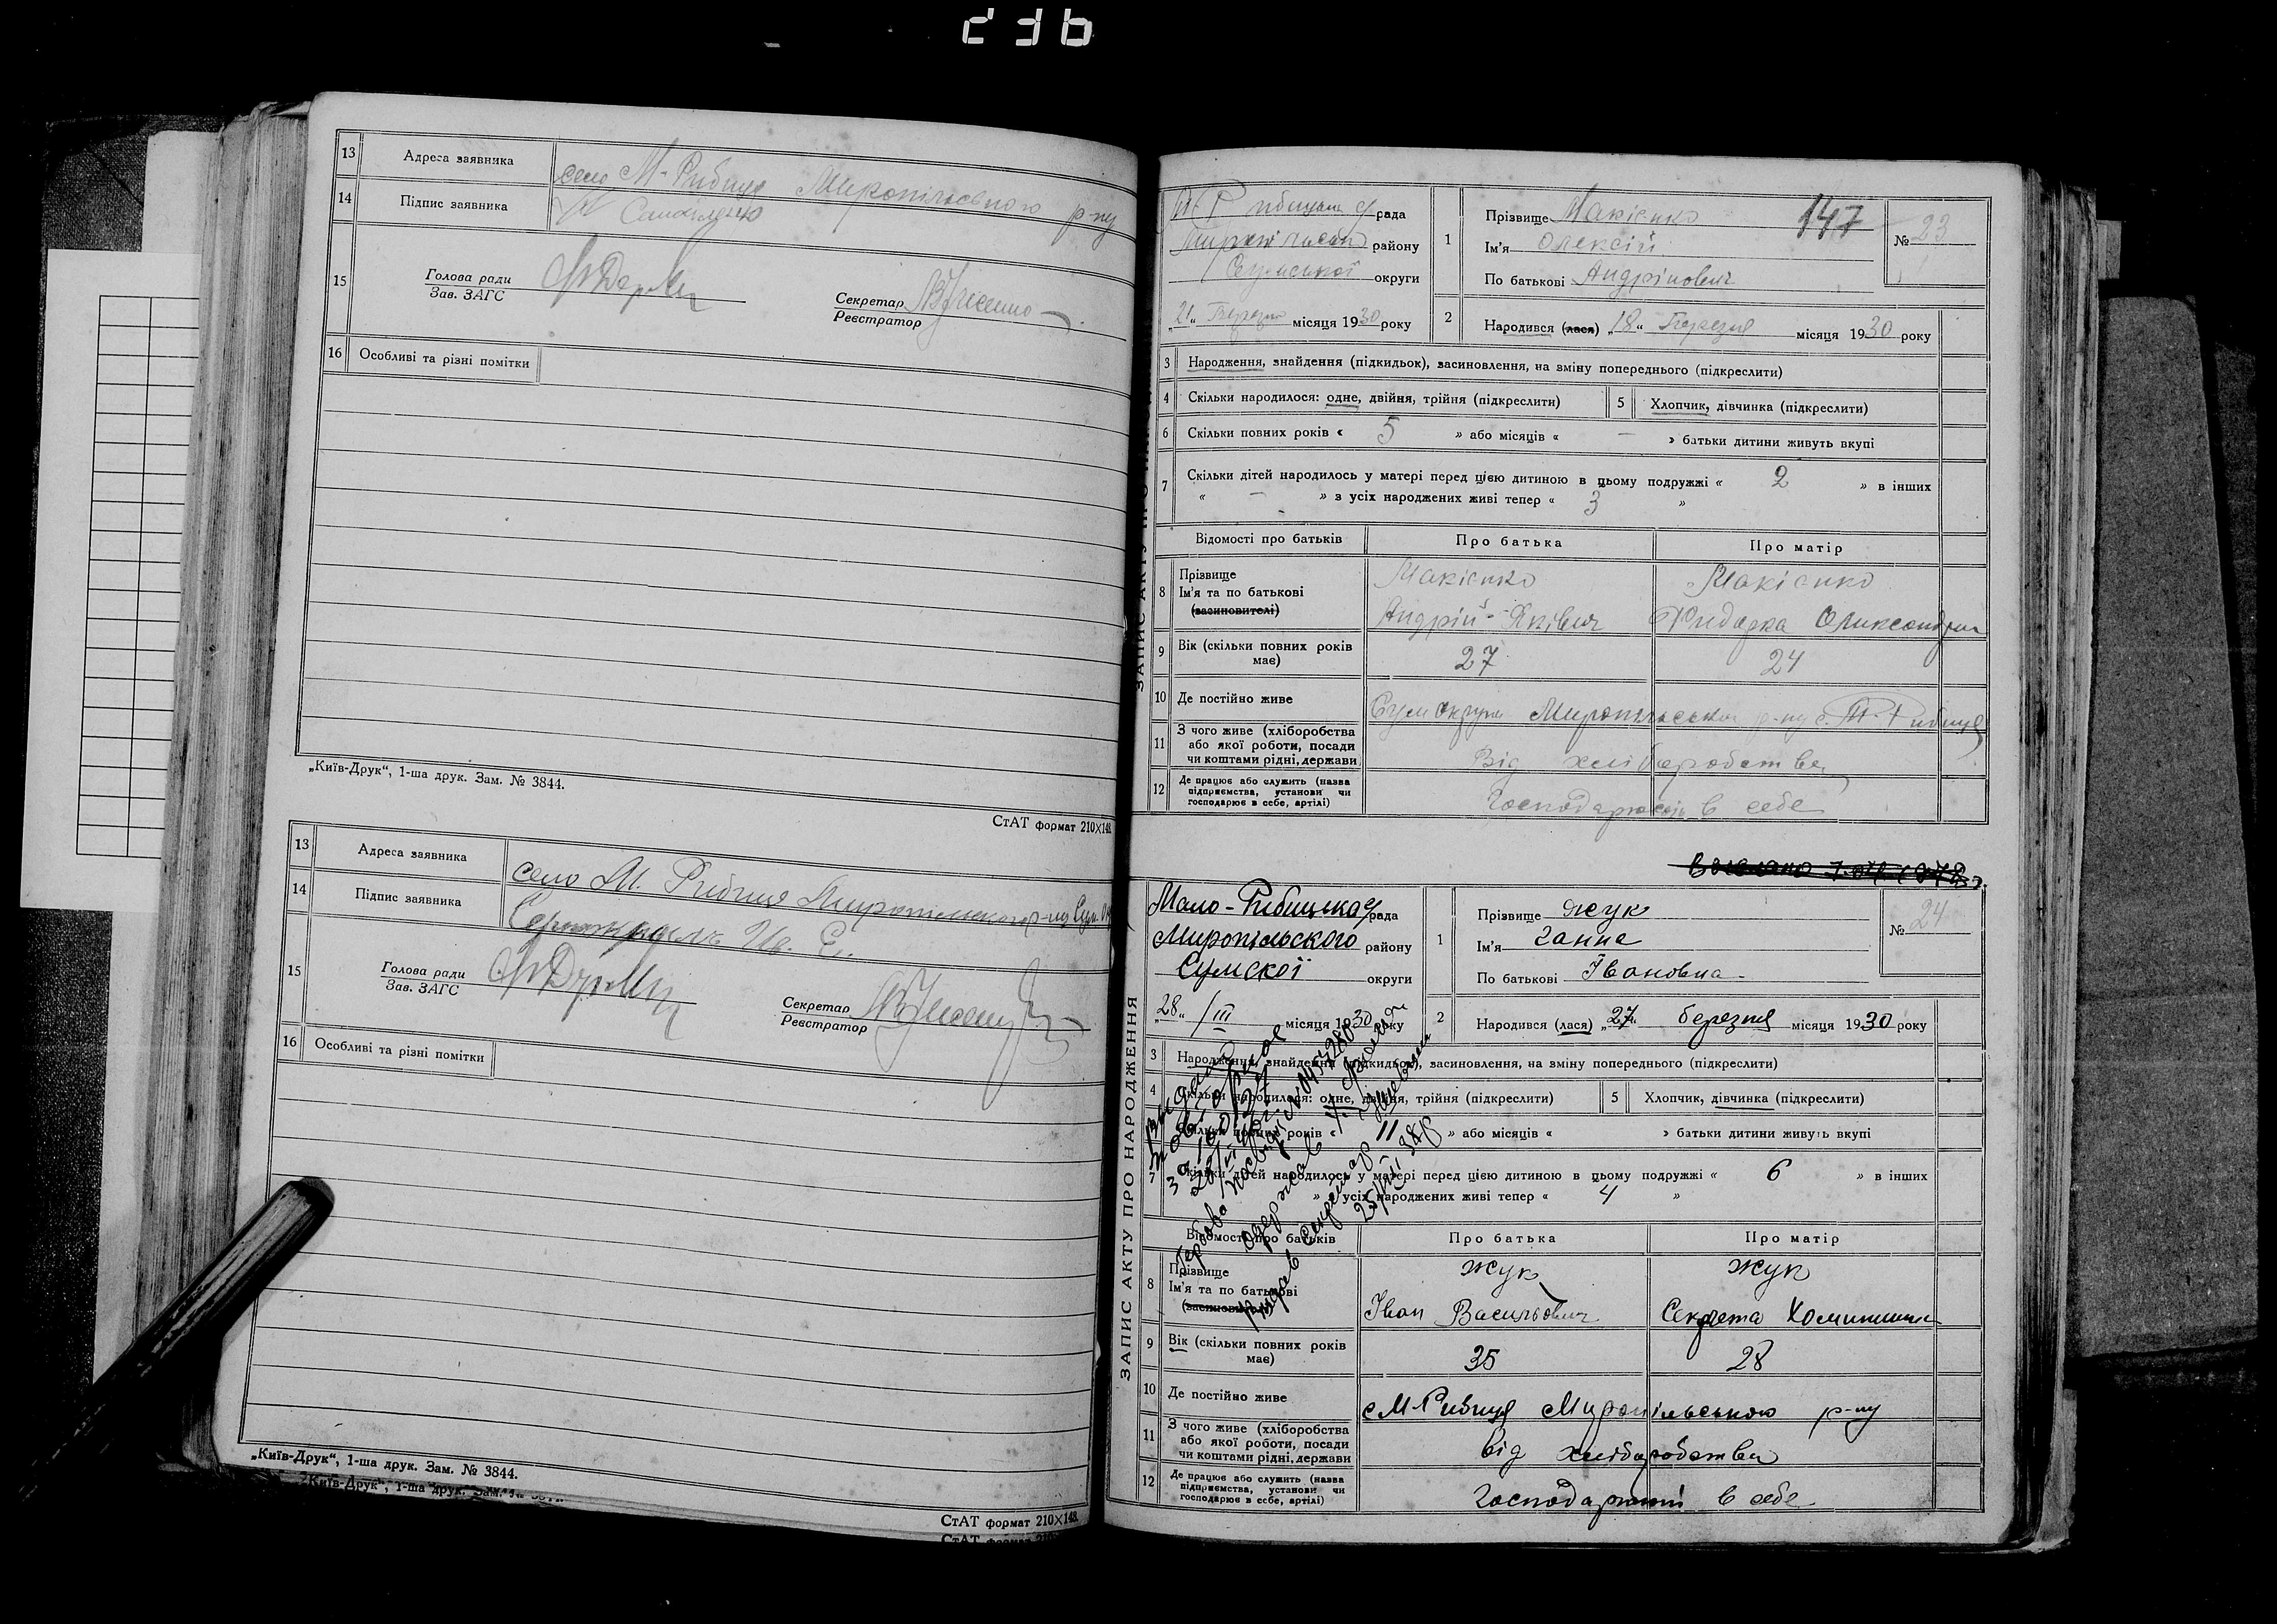 236
13 Адреса заявника село М-Рибиця Миропільського р-ну
14 Підпис заявника
15 Голова ради
Зав. ЗАГС
Секретар
Реєстратор
16 Особливі та різні помітки
„Київ-Друк“, 1-ша друк. Зам. № 3844.
СтАТ формат 210×148.
13 Адреса заявника село М. Рибиця Миропільского р-ну Сум.
14 Підпис заявника
15 Голова ради
Зав. ЗАГС
Секретар
Реєстратор
16 Особливі та різні помітки
„Київ-Друк“, 1-ша друк. Зам. № 3844.
„Київ-Друк“, 1-ша друк. Зам. №
СтАТ формат 210×148.
СтАТ формат
147
рада
району
Сумської округи
„21“ Березня місяця 1930 року
1 Прізвище Макієнко
Ім'я Олексій
По батькові Андрійович
№ 23
2 Народився (лася) „18“ Березня місяця 1930 року
3 Народження, знайдення (підкидьок), засиновлення, на зміну попереднього (підкреслити)
4 Скільки народилося: одне, двійня, трійня (підкреслити) 5 Хлопчик, дівчинка (підкреслити)
6 Скільки повних років « 5 » або місяців « — » батьки дитини живуть вкупі
7 Скільки дітей народилось у матері перед цією дитиною в цьому подружжі « 2 » в інших
« — » з усіх народжених живі тепер « 3 »
Відомості про батьків Про батька Про матір
8 Прізвище Макієнко Макієнко
Ім'я та по батькові
(засиновителі) Андрій Яківич
9 Вік (скільки повних років має) 27 24
10 Де постійно живе Сум округи Миропільського р-ну с. М-Рибиця
11 З чого живе (хліборобства
або якої роботи, посади
чи коштами рідні, держави Від хліборобства
12 Де працює або служить (назва
підприємства, установи чи
господарює в себе, артілі) Господарюють в себе
ЗАПИС АКТУ ПРО НАРОДЖЕННЯ
Мало-Рибицька с/рада
Миропільского району
Сумскої округи
„28“ /III місяця 1930 року
1 Прізвище Жук
Ім'я Ганна
По батькові Івановна
№ 24
2 Народився (лася) „27“ березня місяця 1930 року
3 Народження, знайдення (підкидьок), засиновлення, на зміну попереднього (підкреслити)
4 Скільки народилося: одне, двійня, трійня (підкреслити) 5 Хлопчик, дівчинка (підкреслити)
6 Скільки повних років « 11 » або місяців « » батьки дитини живуть вкупі
7 Скільки дітей народилось у матері перед цією дитиною в цьому подружжі « 6 » в інших
» з усіх народжених живі тепер « 4 »
Відомості про батьків Про батька Про матір
8 Прізвище Жук Жук
Ім'я та по батькові
(засиновителі) Іван Васильович
9 Вік (скільки повних років має) 35 28
10 Де постійно живе с М-Рибиця Миропільського р-ну
11 З чого живе (хліборобства
або якої роботи, посади
чи коштами рідні, держави Від хліборобства
12 Де працює або служить (назва
підприємства, установи чи
господарює в себе, артілі) Господарюють в себе